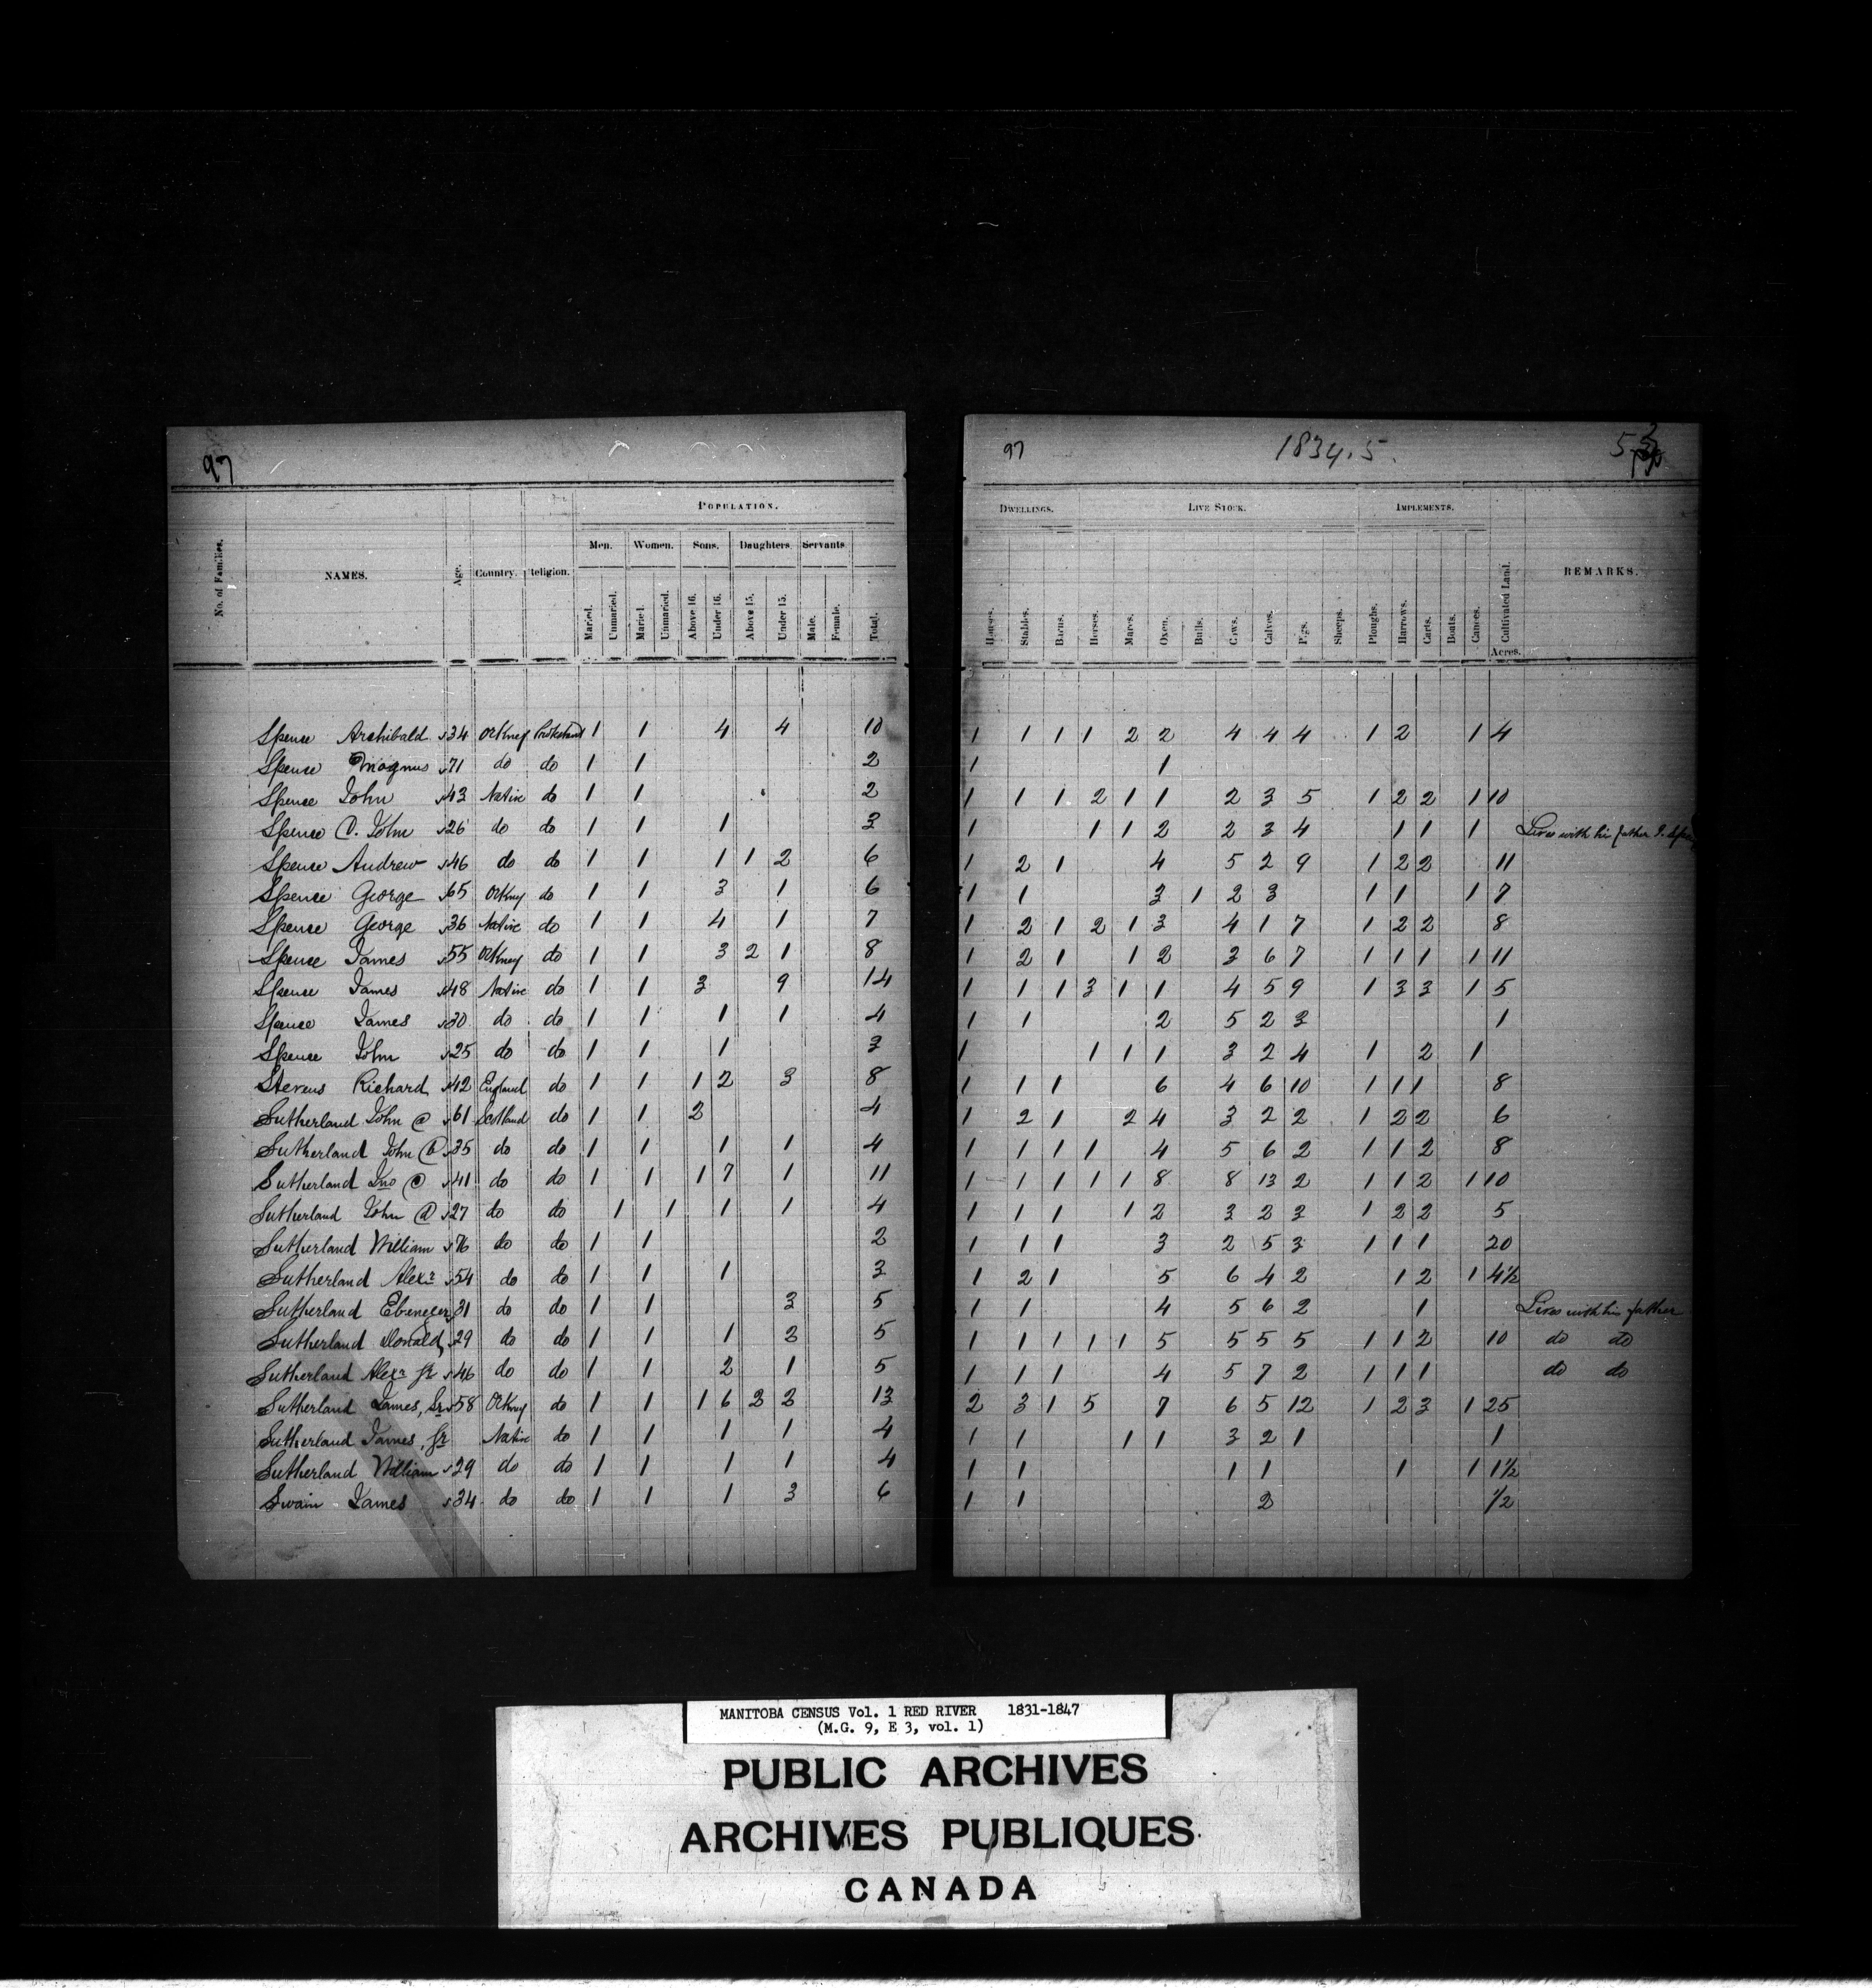 97
POPULATION.
Men. Women. Sons. Daughters. Servants
No. of Families. NAMES. Age. Country. Religion. Maried. Unmaried. Maried. Unmaried. Above 16. Under 16. Above 15. Under 15. Male. Female. Total.
Spence Archibald 34 Orkney Protestant 1 1 4 4 10
Spence Magnus 71 do do 1 1 2
Spence John 43 Native do 1 1 2
Spence John 26 do do 1 1 1 3
Spence Andrew 46 do do 1 1 1 1 2 6
Spence George 65 Orkney do 1 1 3 1 6
Spence George 36 Native do 1 1 4 1 7
Spence James 55 Orkney do 1 1 3 2 1 8
Spence James 48 Native do 1 1 3 9 14
Spence James 30 do do 1 1 1 1 4
Spence John 25 do do 1 1 1 3
Stevens Richard 42 England do 1 1 1 2 3 8
Sutherland John @ 61 Scotland do 1 1 2 4
Sutherland John 35 do do 1 1 1 1 4
Sutherland Jno 41 do do 1 1 1 7 1 11
Sutherland John 27 do do 1 1 1 1 4
Sutherland William 76 do do 1 1 2
Sutherland Alexr 54 do do 1 1 1 3
Sutherland Ebenezer 31 do do 1 1 3 5
Sutherland Donald 29 do do 1 1 1 2 5
Sutherland Alexr Jr 46 do do 1 1 2 1 5
Sutherland James, Sr 58 Orkney do 1 1 1 6 2 2 13
Sutherland James, Jr Native do 1 1 1 1 4
Sutherland William 29 do do 1 1 1 1 4
Swain James 34 do do 1 1 1 3 6
97 1834.5.
DWELLINGS. LIVE STOCK. IMPLEMENTS.
Houses. Stables. Barns. Horses. Mares. Oxen. Bulls. Cows. Calves. Pigs. Sheeps. Ploughs. Harrows. Carts. Boats. Canoes. Cultivated Land. REMARKS.
Acres.
1 1 1 1 2 2 4 4 4 1 2 1 4
1 1
1 1 1 2 1 1 2 3 5 1 2 2 1 10
1 1 1 2 2 3 4 1 1 1 Lives with his father
1 2 1 4 5 2 9 1 2 2 11
1 1 3 1 2 3 1 1 1 7
1 2 1 2 1 3 4 1 7 1 2 2 8
1 2 1 1 2 3 6 7 1 1 1 1 11
1 1 1 3 1 1 4 5 9 1 3 3 1 5
1 1 2 5 2 3 1
1 1 1 1 3 2 4 1 2 1
1 1 1 6 4 6 10 1 1 1 8
1 2 1 2 4 3 2 2 1 2 2 6
1 1 1 1 4 5 6 2 1 1 2 8
1 1 1 1 1 8 8 13 2 1 1 2 1 10
1 1 1 1 2 3 2 3 1 2 2 5
1 1 1 3 2 5 3 1 1 1 20
1 2 1 5 6 4 2 1 2 1 4½
1 1 4 5 6 2 1 Lives with his father
1 1 1 1 1 5 5 5 5 1 1 2 10 do do
1 1 1 4 5 7 2 1 1 1 do do
2 3 1 5 7 6 5 12 1 2 3 1 25
1 1 1 1 3 2 1 1
1 1 1 1 1 1 1½
1 1 2 ½
MANITOBA CENSUS Vol. 1 RED RIVER 1831-1847
(M.G. 9, E 3, vol. 1)
PUBLIC ARCHIVES
ARCHIVES PUBLIQUES
CANADA